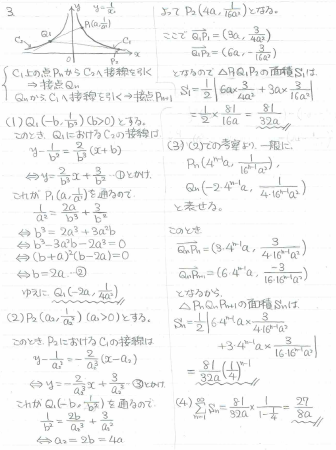 3.
y
y=1/x²
P₁(a, 1/a²)
Q₁
P₂
C₂
C₁
x
C₁上の点PnからC₂へ接線を引く
→接点Qn
QnからC₁へ接線を引く→接点Pn+1
(1) Q₁(-b, 1/b²) (b>0)とする。
このとき、Q₁におけるC₂の接線は
y-1/b² = 2/b³ (x+b)
⇔ y = 2/b³ x + 3/b² …①とかけ、
これが P₁(a, 1/a²)を通るので
1/a² = 2a/b³ + 3/b²
⇔ b³ = 2a³+3a²b
⇔ b³-3a²b-2a³=0
⇔ (b+a)²(b-2a)=0
⇔ b=2a …②
ゆえに Q₁(-2a, 1/4a²)
(2) P₂(a₂, 1/a₂²) (a₂>0)とする。
このとき、P₂におけるC₁の接線は
y-1/a₂² = -2/a₂³ (x-a₂)
⇔ y = -2/a₂³ x + 3/a₂² …③とかけ
これがQ₁(-b, 1/b²)を通るので
1/b² = 2b/a₂³ + 3/a₂²
⇔ a₂ = 2b = 4a
よって P₂(4a, 1/16a²)となる。
ここで Q₁P₁ = (3a, 3/4a²)
Q₁P₂ = (6a, -3/16a²)
となるので △P₁Q₁P₂の面積S₁は
S₁ = 1/2 |6a×3/4a² + 3a×3/16a²|
= 1/2 × 81/16a = 81/32a
(3) (2)での考察より、一般に、
Pn(4ⁿ⁻¹a, 1/16ⁿ⁻¹a²),
Qn(-2·4ⁿ⁻¹a, 1/4·16ⁿ⁻¹a²)
と表せる。
このとき
QnPn = (3·4ⁿ⁻¹a, 3/4·16ⁿ⁻¹a²)
QnPn+1 = (6·4ⁿ⁻¹a, -3/16·16ⁿ⁻¹a²)
となるから、
△PnQnPn+1の面積Snは
Sn = 1/2 |6·4ⁿ⁻¹a × 3/4·16ⁿ⁻¹a²
+3·4ⁿ⁻¹a × 3/16·16ⁿ⁻¹a²|
= 81/32a (1/4)ⁿ⁻¹
(4) ∑n=1∞ Sn = 81/32a × 1/1-1/4 = 27/8a